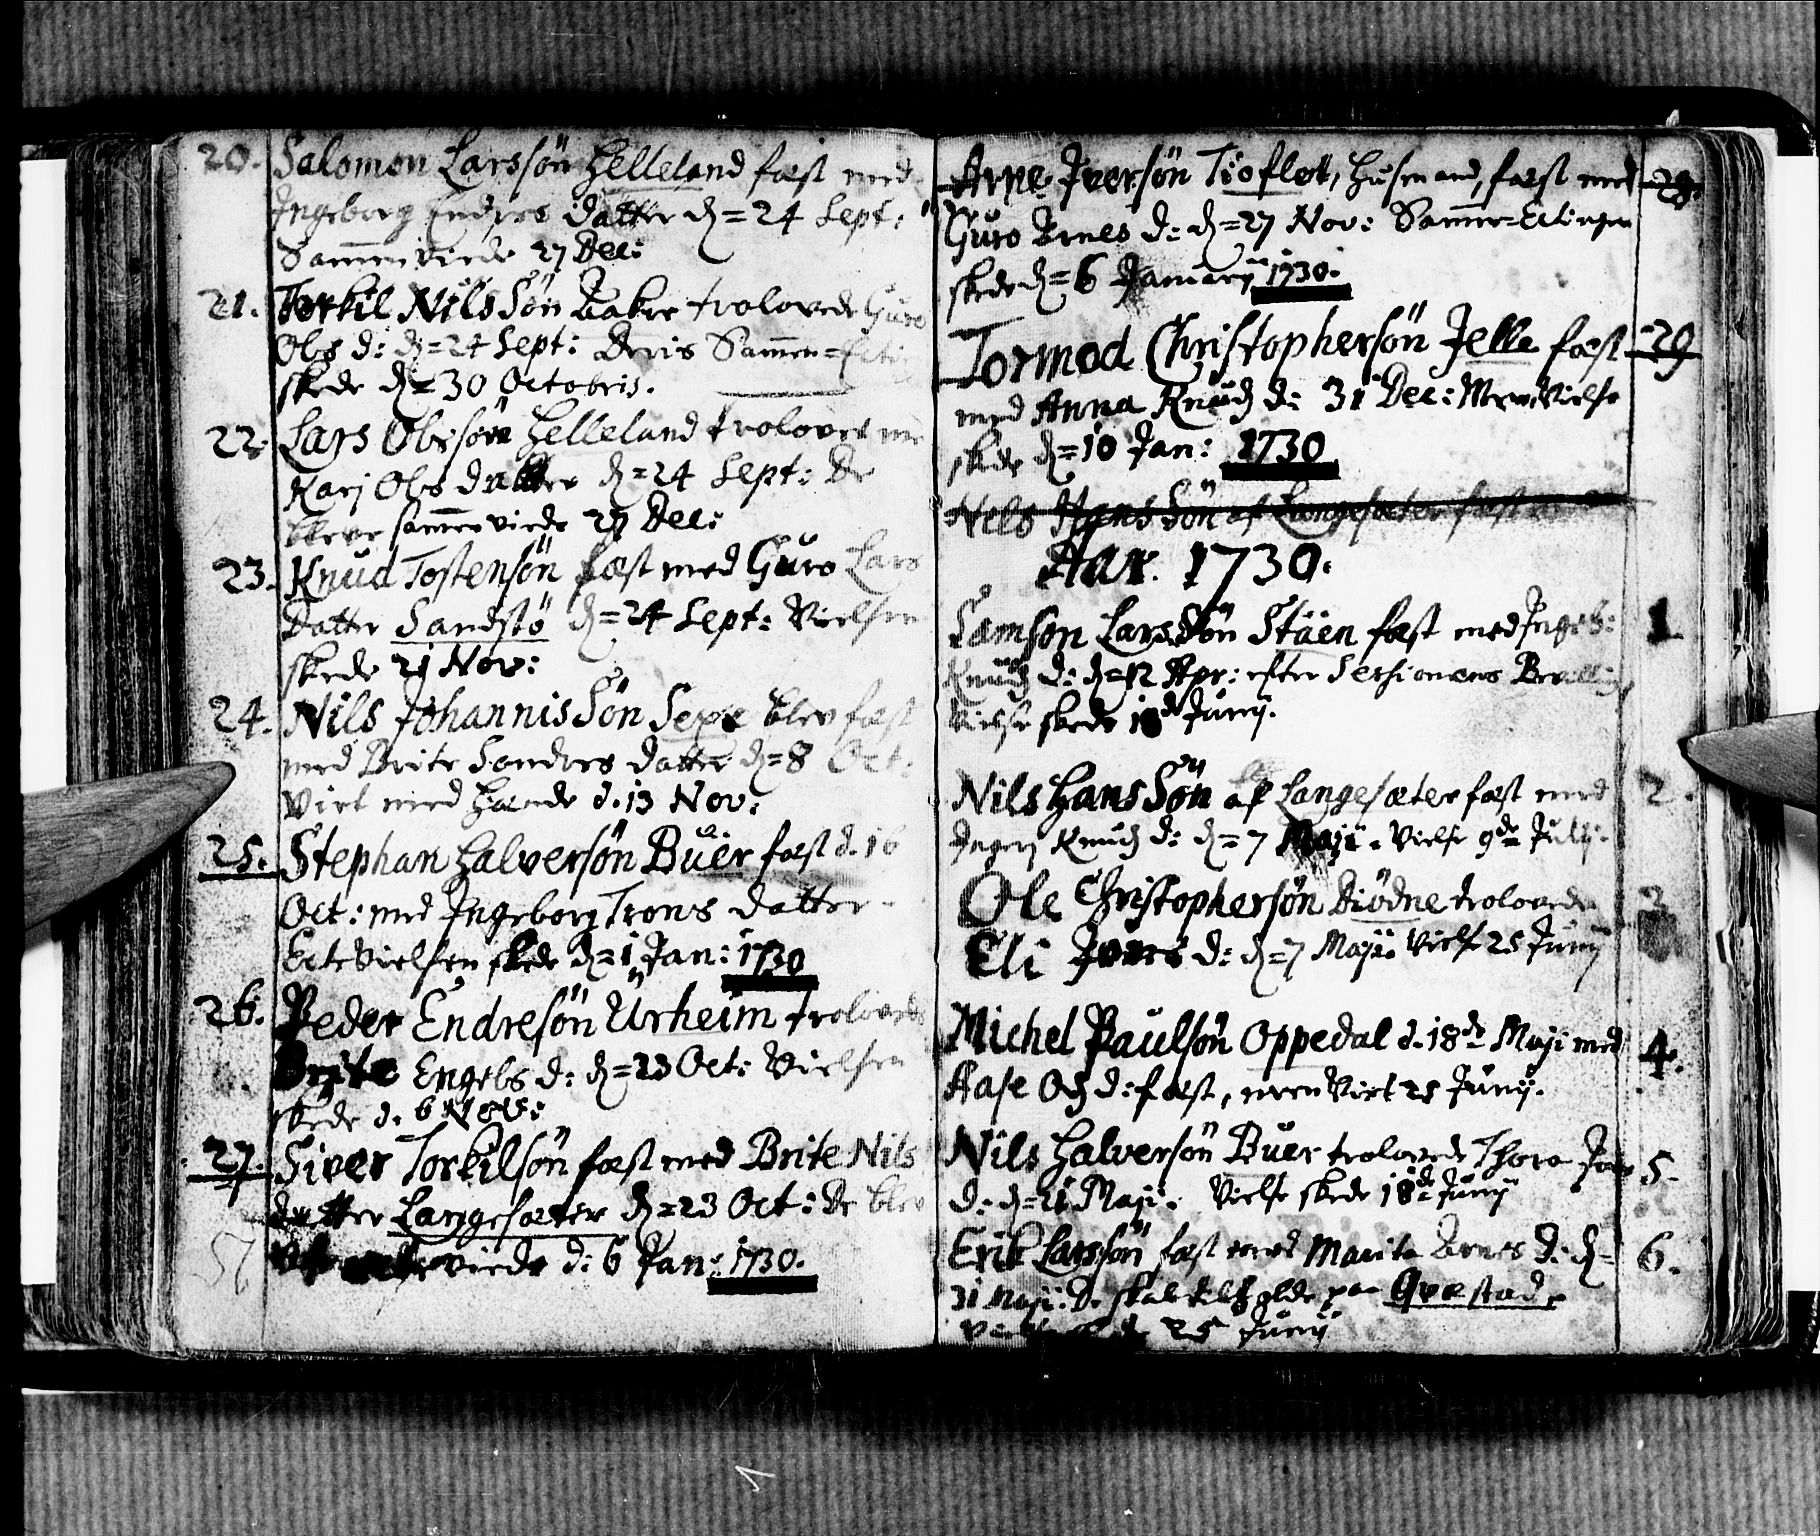 20. Salomon Larssøn Helleland fæst med
Ingeborg Endres datter d = 24 Sept:
Sammenviede 27 Dec:
21. Torkil NilsSøn Bakke trolovede Guro
Ols d: d = 24 Sept: Deris Sammen=
skede d = 30 Octobris.
22. Lars Olessøn Helleland trolovet
Karj Ols datter d = 24 Sept: De
bleve sammenviede 27 Dec:
23. Knud Tostensøn fæst med Guro Lars
Datter Sandstø d = 24 Sept: Vielsen
skede 21 Nov:
24. Nils JohannisSøn Sexe blev fæst
med Brite Sonders datter d = 8 Oct:
Viet med hænde d. 13 Nov:
25. Stephan Halversøn Büer fæst d. 16
Oct: med Ingeborg Trons datter
EcteVielsen skede d = 1 Jan: 1730
26. Peder Endresøn Urheim trolovede
Brite Engels d: d = 23 Oct: Vielsen
skede d. 6 Nov:
27. Siver Torkilsøn fæst med Brite Nils
datter Langesæter d = 23 Oct: De blev
viede d: 6 Jan: 1730.
Arne Iversøn Tioflot, Husmand, fæst med 28.
Guro Arnes d: d = 27 Nov:
skede d = 6 Januarij 1730.
Tormod Christophersøn Jelle fæst 29
med Anna Knudz d: 31 Dec: Vielse
skede d = 10 Jan: 1730
Nels HansSøn af Langesæter fæst
Aar. 1730.
Samson LarsSøn Stäen fæst med Ingeb: 1
Knudz d: d = 12 Apr: efter Sessionens Bevilling
Vielse skede 18de Junij.
Nils HansSøn af Langesæter fæst med 2.
Knudz d: d = 7 Maji. Vielse 9de Julij.
Ole Christophersøn Diødne trolovede
Eli Ivers d: d = 7 Maji. Vielse 25 Junij
Michel Paulsøn Oppedal d. 18de Maji med 4.
Aase d: fæst, men Viet 25 Junij.
Nils Halversøn Büer trolovede Thora 5.
d: d = 21 Maji. Vielse skede 18de Junij
Erik Larssøn fæst med Marita Arnes d: d = 6.
31 Maji: De skal holde paa Qvæstad,
25 Junij